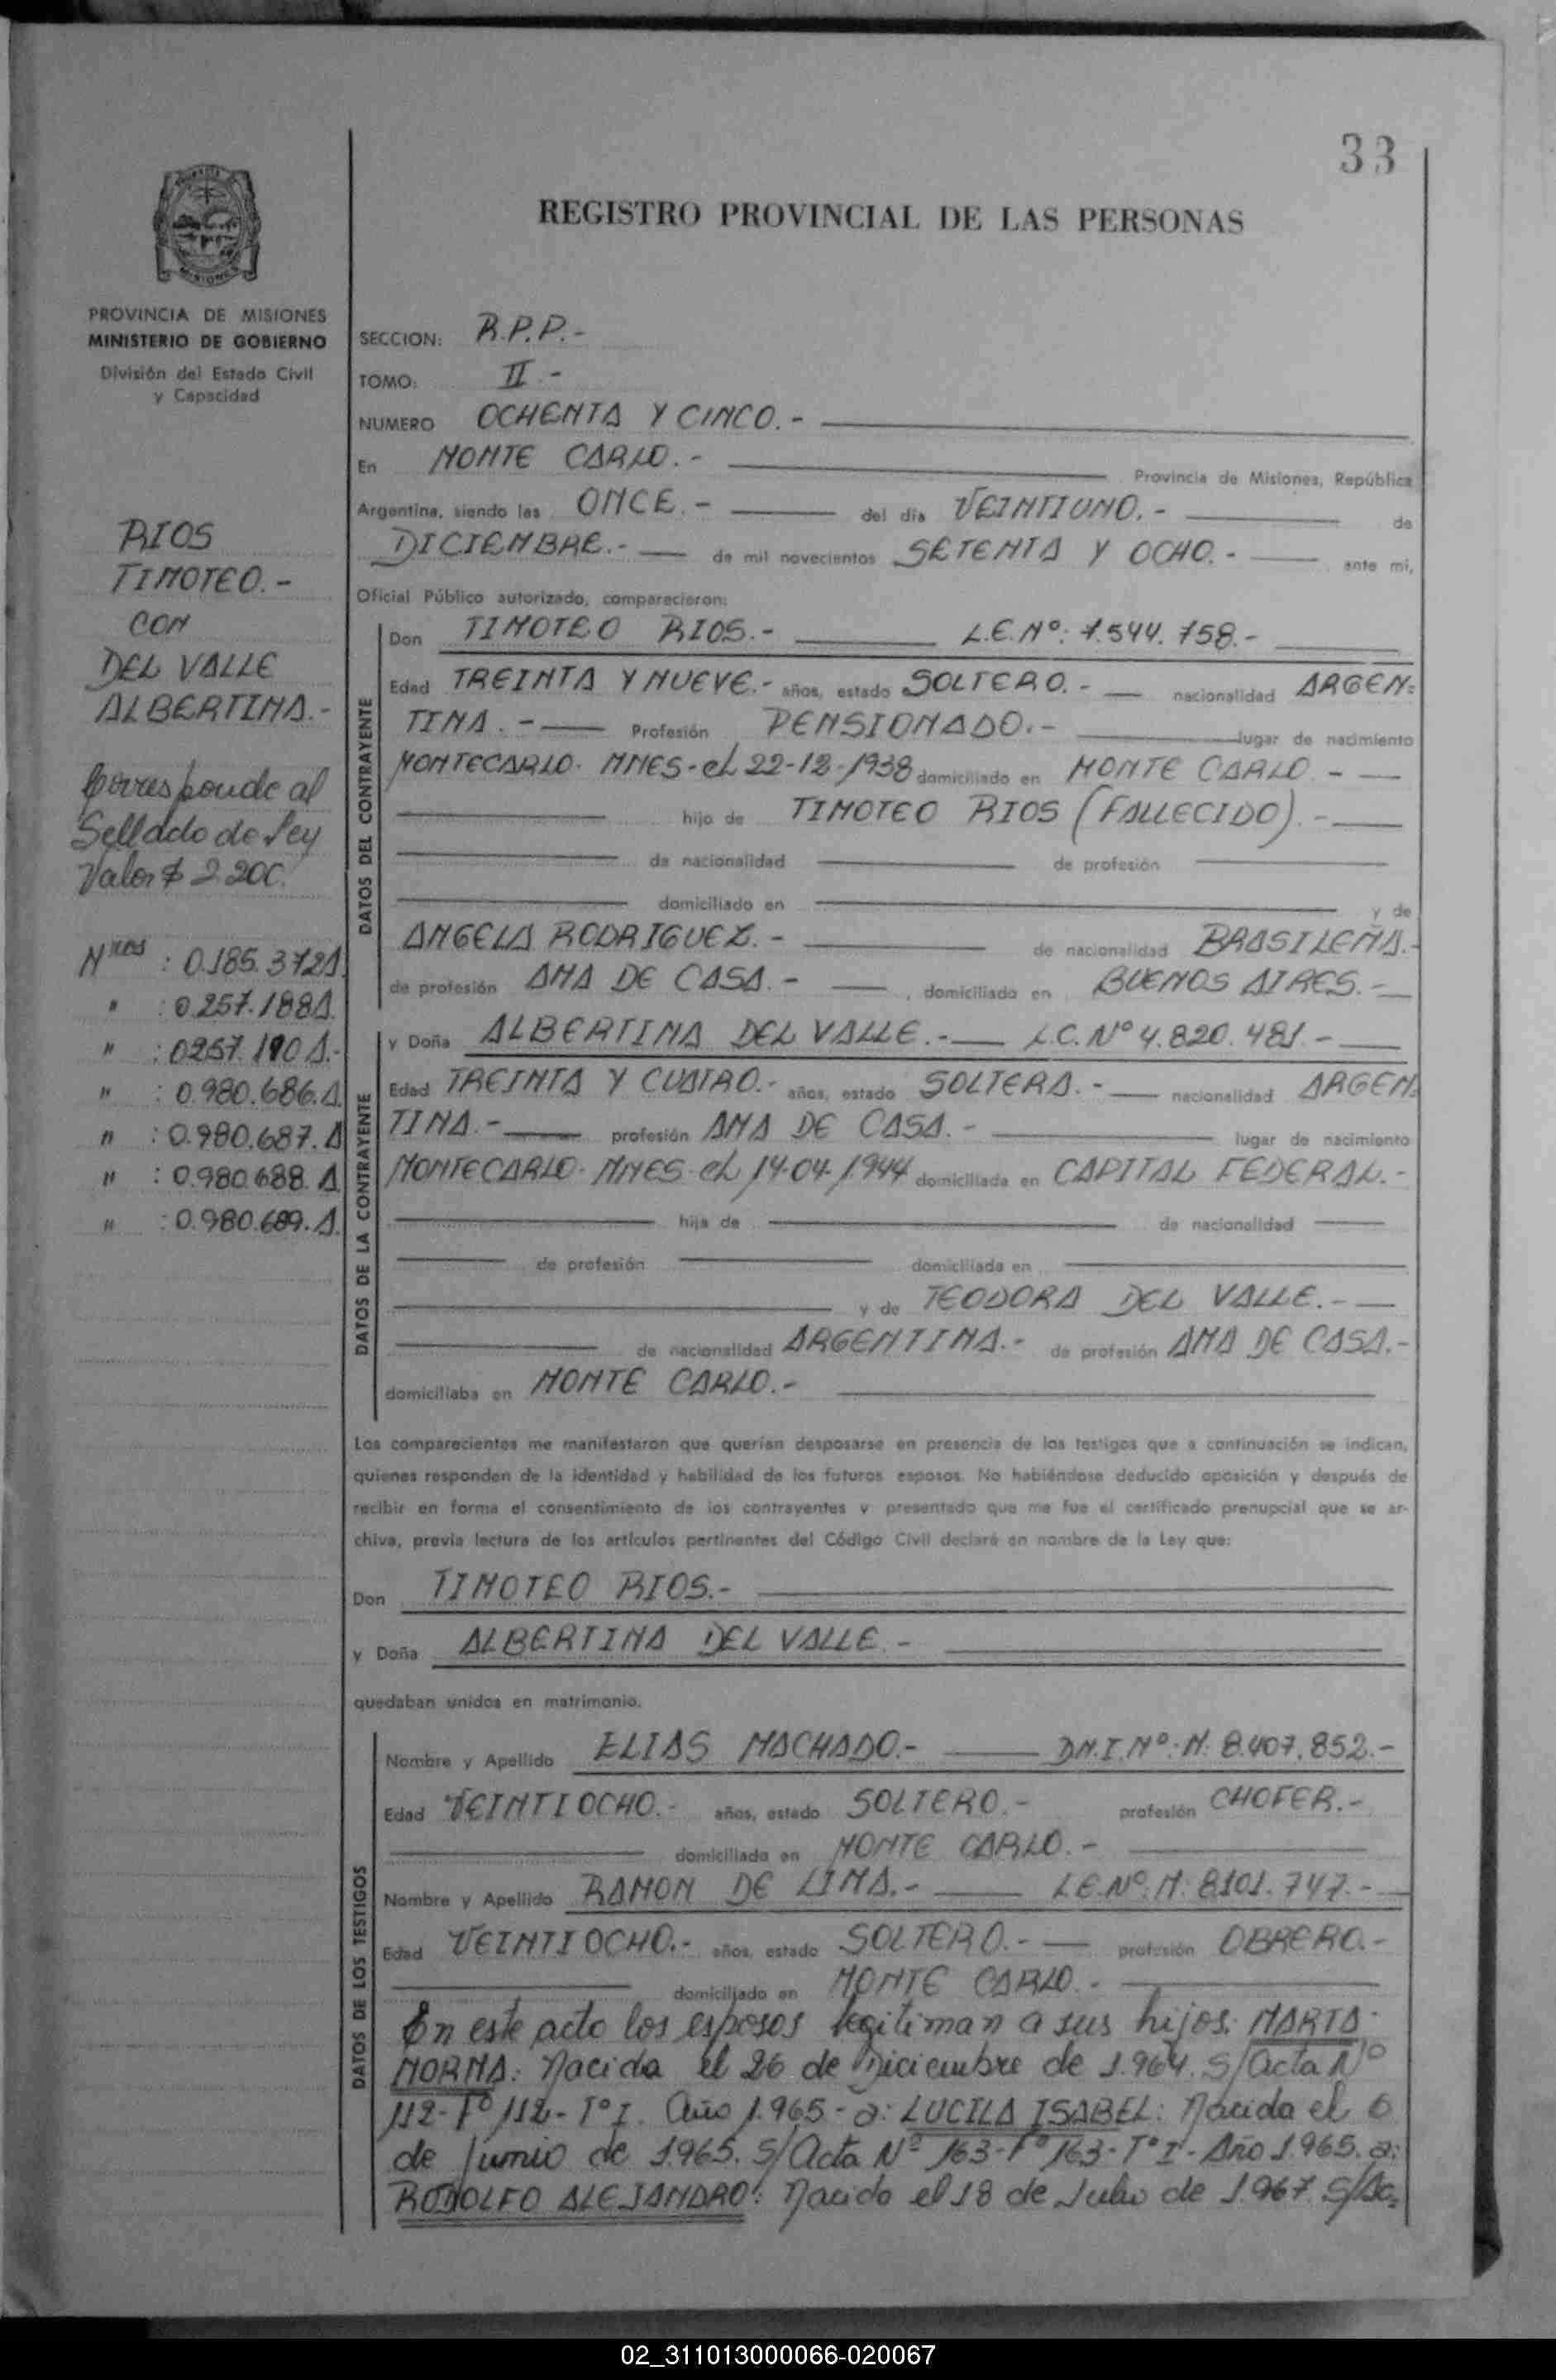 33
REGISTRO PROVINCIAL DE LAS PERSONAS
MISIONES
PROVINCIA DE MISIONES
MINISTERIO DE GOBIERNO
División del Estado Civil
y Capacidad
RIOS
TIMOTEO.-
CON
DEL VALLE
ALBERTINA.-
Corresponde al
Sellado de Ley
Valor $ 2.200.
Nros : 0.185.372A.
" : 0.257.188A.
" : 0257.190A.-
" : 0.980.686.A.
" : 0.980.687.A
" : 0.980.688.A
" : 0.980.689.A.
SECCION: R.P.P.-
TOMO: II.-
NUMERO OCHENTA Y CINCO.-
En MONTE CARLO.- Provincia de Misiones, República
Argentina, siendo las ONCE.- del día VEINTIUNO.- de
DICIEMBRE.- de mil novecientos SETENTA Y OCHO.- ante mi,
Oficial Público autorizado, comparecieron:
DATOS DEL CONTRAYENTE
Don TIMOTEO RIOS.- L.E.Nº: 7.544.758.-
Edad TREINTA Y NUEVE.- años, estado SOLTERO.- nacionalidad ARGEN=
TINA.- Profesión PENSIONADO.- lugar de nacimiento
MONTECARLO- MNES-el 22-12-1938 domiciliado en MONTE CARLO.-
hijo de TIMOTEO RIOS (FALLECIDO).-
de nacionalidad de profesión
domiciliado en y de
ANGELA RODRIGUEZ.- de nacionalidad BRASILEÑA.-
de profesión AMA DE CASA.- , domiciliado en BUENOS AIRES.-
DATOS DE LA CONTRAYENTE
y Doña ALBERTINA DEL VALLE.- L.C.Nº 4.820.481.-
Edad TREINTA Y CUATRO.- años, estado SOLTERA.- nacionalidad ARGEN=
TINA.- profesión AMA DE CASA.- lugar de nacimiento
MONTECARLO- MNES-el 14-04-1944 domiciliada en CAPITAL FEDERAL.-
hija de de nacionalidad
de profesión domiciliada en
y de TEODORA DEL VALLE.-
de nacionalidad ARGENTINA.- de profesión AMA DE CASA.-
domiciliaba en MONTE CARLO.-
Los comparecientes me manifestaron que querían desposarse en presencia de los testigos que a continuación se indican,
quienes responden de la identidad y habilidad de los futuros esposos. No habiéndose deducido oposición y después de
recibir en forma el consentimiento de los contrayentes y presentado que me fue el certificado prenupcial que se ar-
chiva, previa lectura de los artículos pertinentes del Código Civil declaré en nombre de la Ley que:
Don TIMOTEO RIOS.-
y Doña ALBERTINA DEL VALLE.-
quedaban unidos en matrimonio.
DATOS DE LOS TESTIGOS
Nombre y Apellido ELIAS MACHADO.- D.N.I.Nº:M: 8.407.852.-
Edad VEINTIOCHO.- años, estado SOLTERO.- profesión CHOFER.-
domiciliado en MONTE CARLO.-
Nombre y Apellido RAMON DE LIMA.- L.E.Nº:M: 8.101.747.-
Edad VEINTIOCHO.- años, estado SOLTERO.- profesión OBRERO.-
domiciliado en MONTE CARLO.-
En este acto los esposos legitiman a sus hijos: MARTA-
NORMA: Nacida el 26 de Diciembre de 1.964. S/Acta Nº
112-Fº 112-TºI. Año 1.965-a: LUCILA ISABEL: Nacida el 6
de Junio de 1.965. S/Acta Nº 163-Fº 163-TºI-Año 1.965. a:
RODOLFO ALEJANDRO: Nacido el 18 de Julio de 1.967 S/Ac=
02_311013000066-020067